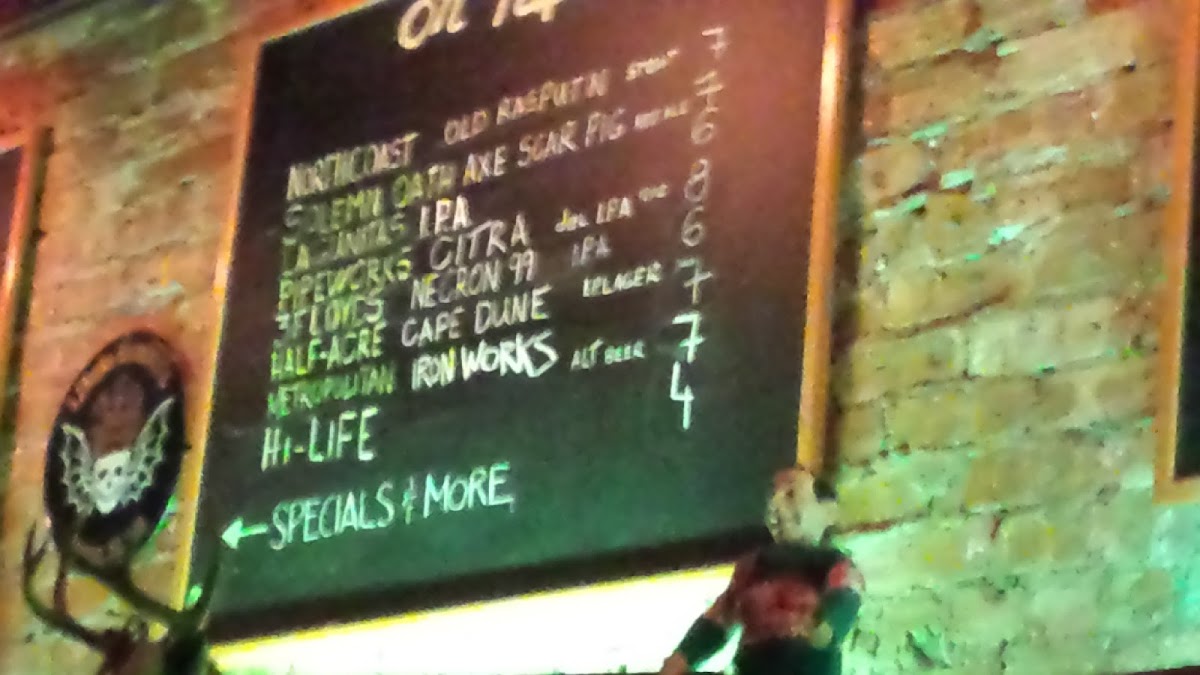 On Tap
NORTHCOAST OLD RASPUTIN STOUT 7
SOLEMN OATH AXE SCAR PIG 7
LAGUNITAS IPA 6
PIPEWORKS CITRA IPA 8
3 FLOYDS NECRON 99 IPA 6
HALF-ACRE CAPE DUNE 7
METROPOLITAN IRON WORKS ALT BEER 7
Hi-LIFE 4
← SPECIALS & MORE